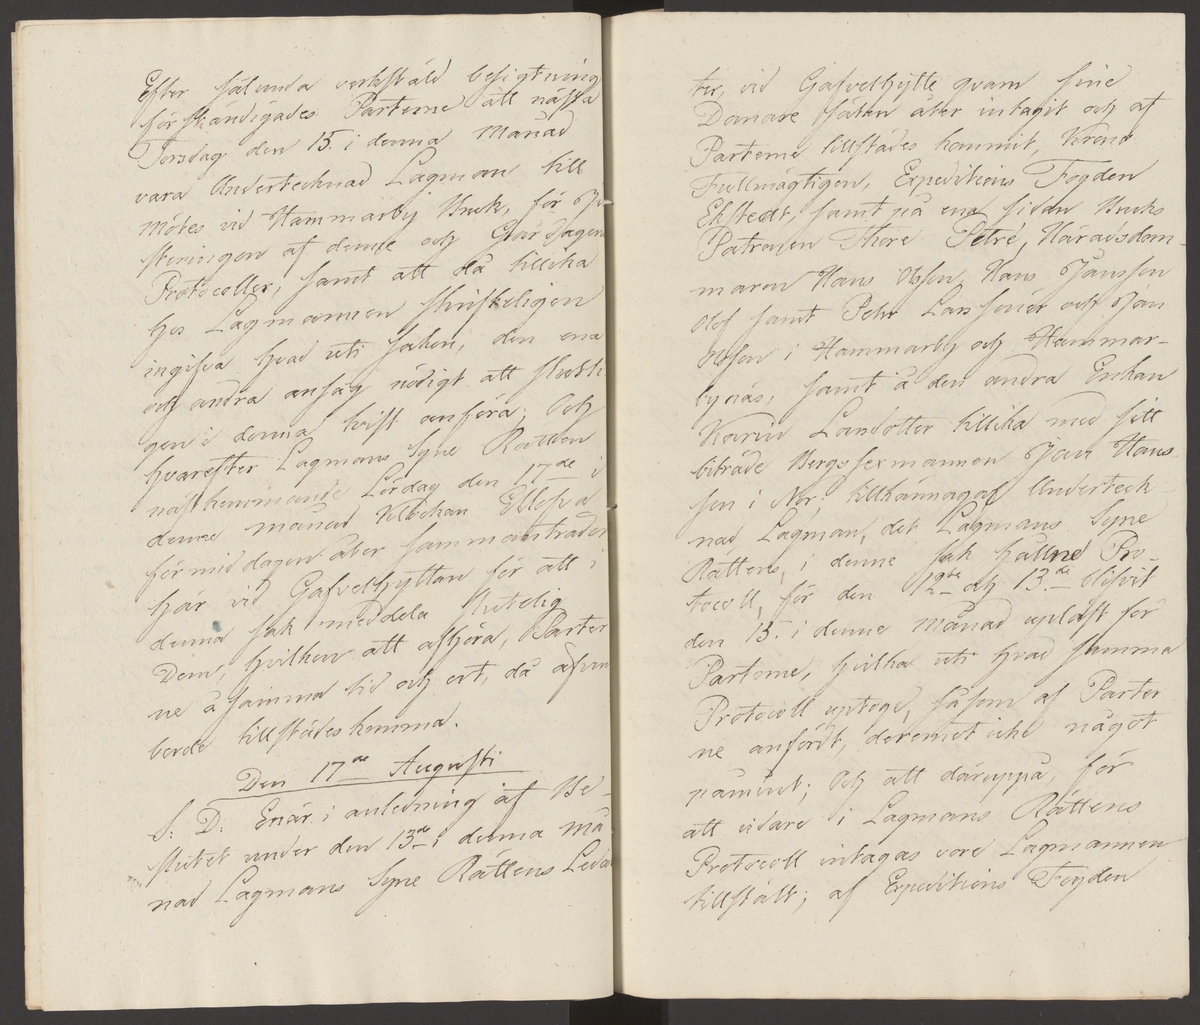 Efter sålunda verkstäld besigtning
förständigades Parterne att nästa
Torsdag den 15. i denna Månad
vara Undertecknad Lagman till
mötes vid Hammarby Bruk, för Ju-
steringen af denne och Gårdagens
Protocoller, samt att då tillika
hos Lagmannen skrifteligen
ingifva hvad uti saken, den ena
och andra ansåg nödigt att slutli-
gen i denna tvist anföra; Och
hvarefter Lagmans Syne Rätten
nästkommande Lördag den 17de i
denne månad Klockan Ellofva
förmiddagen åter sammanträder
här vid Gafvelhyttan för att i
denna sak meddela slutelig
Dom, hvilken att afhöra, Parter
ne å samma tid och ort, då äfven
borde tillstädes komma.
Den 17de Augusti
S: D: Enär i anledning af Be-
slutet under den 13de i denna Må
nad Lagmans Syne Rättens Leda
ter, vid Gafvelhytte qvarn sine
Domare säten åter intagit och af
Parterne tillstädes kommit, Krono
Fullmägtigen, Expeditions Fogden
Ekstedt, samt på ena sidan Bruks
Patronen Thore Petré, Häradsdom-
maren Hans Olsson, Hans Jansson
Olof samt Pehr Larssöner och Jan
Olsson i Hammarby och Hammar-
bynäs, samt å den andra Enkan
Karin Larsdotter tillika med sitt
biträde Bergssexmannen Jan Hans-
son i Nor: tillkännagaf Underteck-
nad Lagman, det Lagmans Syne
Rättens, i denne sak hållne Pro-
tocoll, för den 12te och 13de blifvit
den 15. i denne Månad upläst för
Parterne, hvilka uti hvad samma
Protocoll uptoge, såsom af Parter
ne anfördt, deremot icke något
påmint; Och att däruppå, för
att vidare i Lagmans Rättens
Protocoll intagas vore Lagmannen
tillstält; af Expeditions Fogden